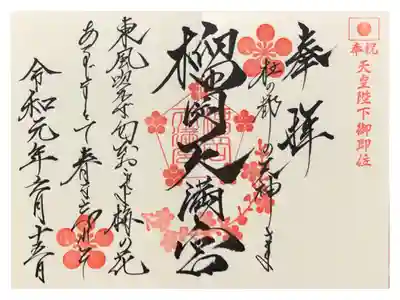 奉祝
天皇陛下御即位
奉拝
杜の都の天神さま
榴岡天満宮
東風吹かば匂ひおこせよ梅の花
あるじなしとて春な忘れそ
令和元年六月十五日